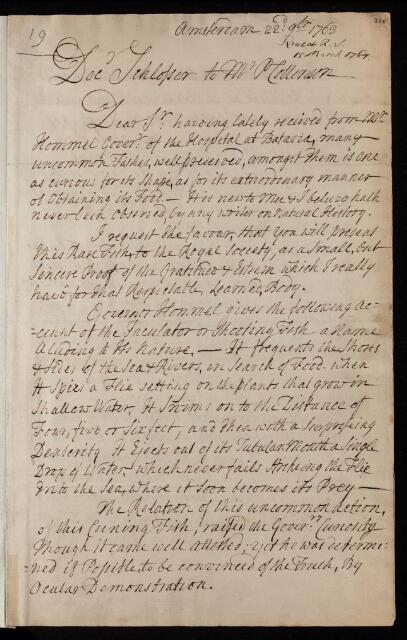 19
Amsterdam 22d. 9br. 1763
Read at R. S.
15 March 1764.
Docr. Schlosser to Mr. P Collinson
Dear Sr. haveing lately recieved from Mr.
Hommel Goverr. of the Hospital at Batavia, many
uncommon Fishes, well preserved, amongst them is one
as curious for its Shape, as for its extraordinary manner
of obtaining its Food — It is new to Mee & I believe hath
never been observed by any writer on Natural History.
I request the favour, that you will present
this Rare Fish, to the Royal Society, as a Small, but
Sincere Proof of the Gratitude & Esteem which I really
have for that Respectable, Learned, Body.
Governor Hommel gives the following Ac-
=count of the Jaculator or Shooting Fish a Name
Aluding to Its Nature, — It frequents the Shores
& sides of the Sea & Rivers, in Search of Food. when
It Spies a Flie setting on the plants that grow in
Shallow Water, It Swims on to the Distance of
Four, five or Six feet, and then with a Surpriseing
Dexterity It Ejects out of its Tubular Mouth a Single
Drop of Water, which never fails Striking the Flie
Into the Sea, where it soon becomes its Prey —
The Relation of this uncommon Action,
of this Cuning Fish, raised the Goverrs. Curiosity
though it came well attested; yet he was determi-
=ned if Possible, to be convinced of the Truth, By
Ocular Demonstration.